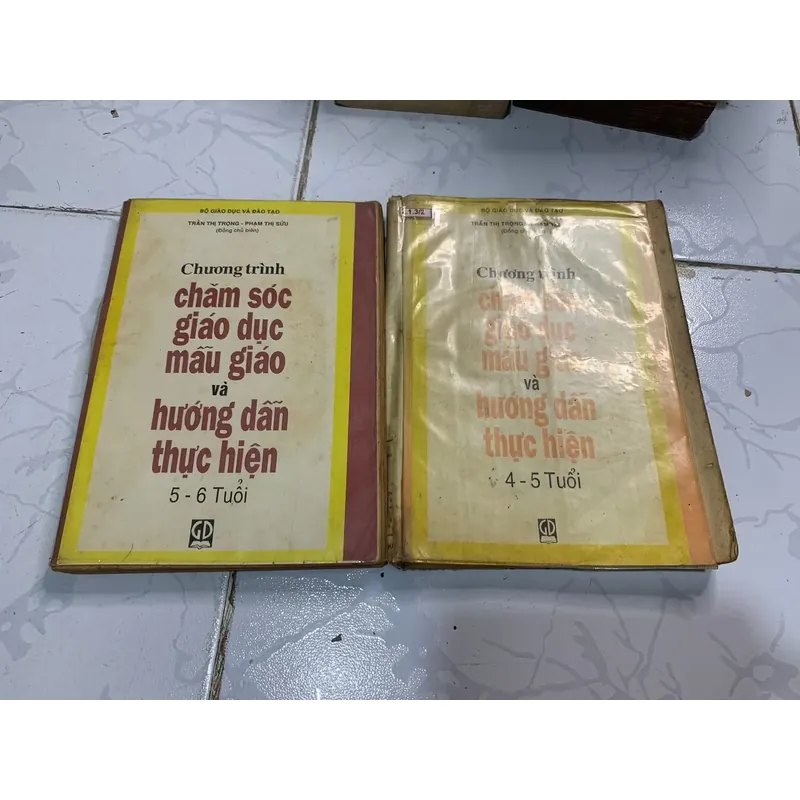 BỘ GIÁO DỤC VÀ ĐÀO TẠO
TRẦN THỊ TRỌNG - PHẠM THỊ SỬU
(Đồng chủ biên)
Chương trình
chăm sóc
giáo dục
mẫu giáo
và
hướng dẫn
thực hiện
5 - 6 Tuổi
GD
1.3/2
BỘ GIÁO DỤC VÀ ĐÀO TẠO
TRẦN THỊ TRỌNG - PHẠM
(Đồng
Chương trình
chăm sóc
giáo dục
mẫu giáo
và
hướng dẫn
thực hiện
4 - 5 Tuổi
GD